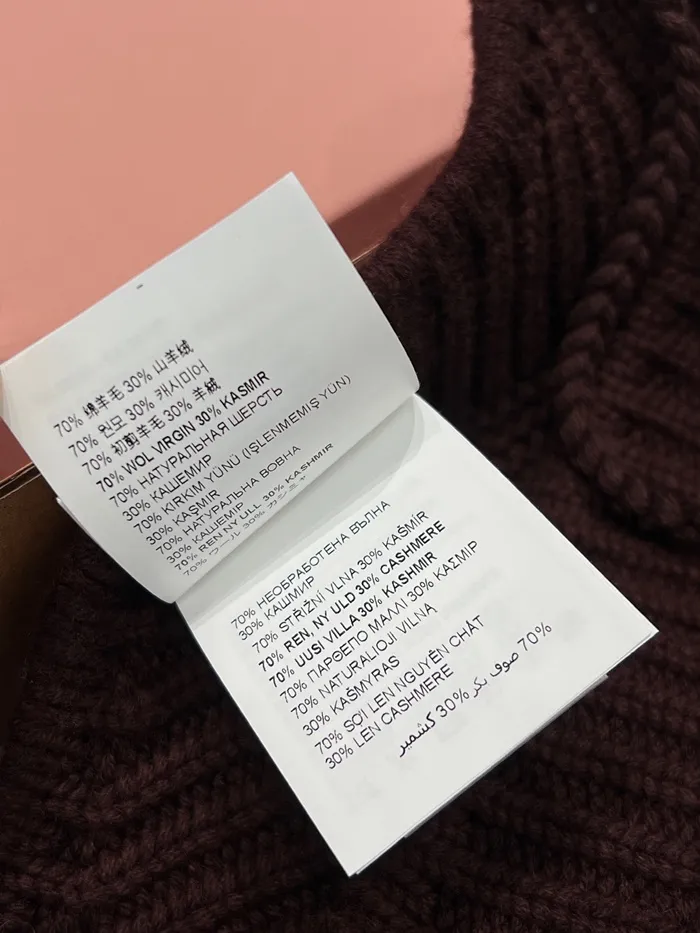 70% 绵羊毛 30% 山羊绒
70% 원모 30% 캐시미어
70% 初剪羊毛 30% 羊絨
70% WOL VIRGIN 30% KASMIR
70% НАТУРАЛЬНАЯ ШЕРСТЬ
30% КАШЕМИР
70% KIRKIM YÜNÜ (IŞLENMEMIŞ YÜN)
30% KAŞMIR
70% НАТУРАЛЬНА ВОВНА
30% КАШЕМІР
70% REN NY ULL 30% KASHMIR
70% ウール 30% カシミヤ
70% НЕОБРАБОТЕНА ВЪЛНА
30% КАШМИР
70% STŘIŽNÍ VLNA 30% KAŠMÍR
70% REN, NY ULD 30% CASHMERE
70% UUSI VILLA 30% KASHMIR
70% ΠΑΡΘΕΠΟ ΜΑΛΛΙ 30% ΚΑΣΜΙΡ
70% NATURALIOJI VILNA
30% KAŠMYRAS
70% SỢI LEN NGUYÊN CHẤT
30% LEN CASHMERE
70% صوف بكر 30% كشمير